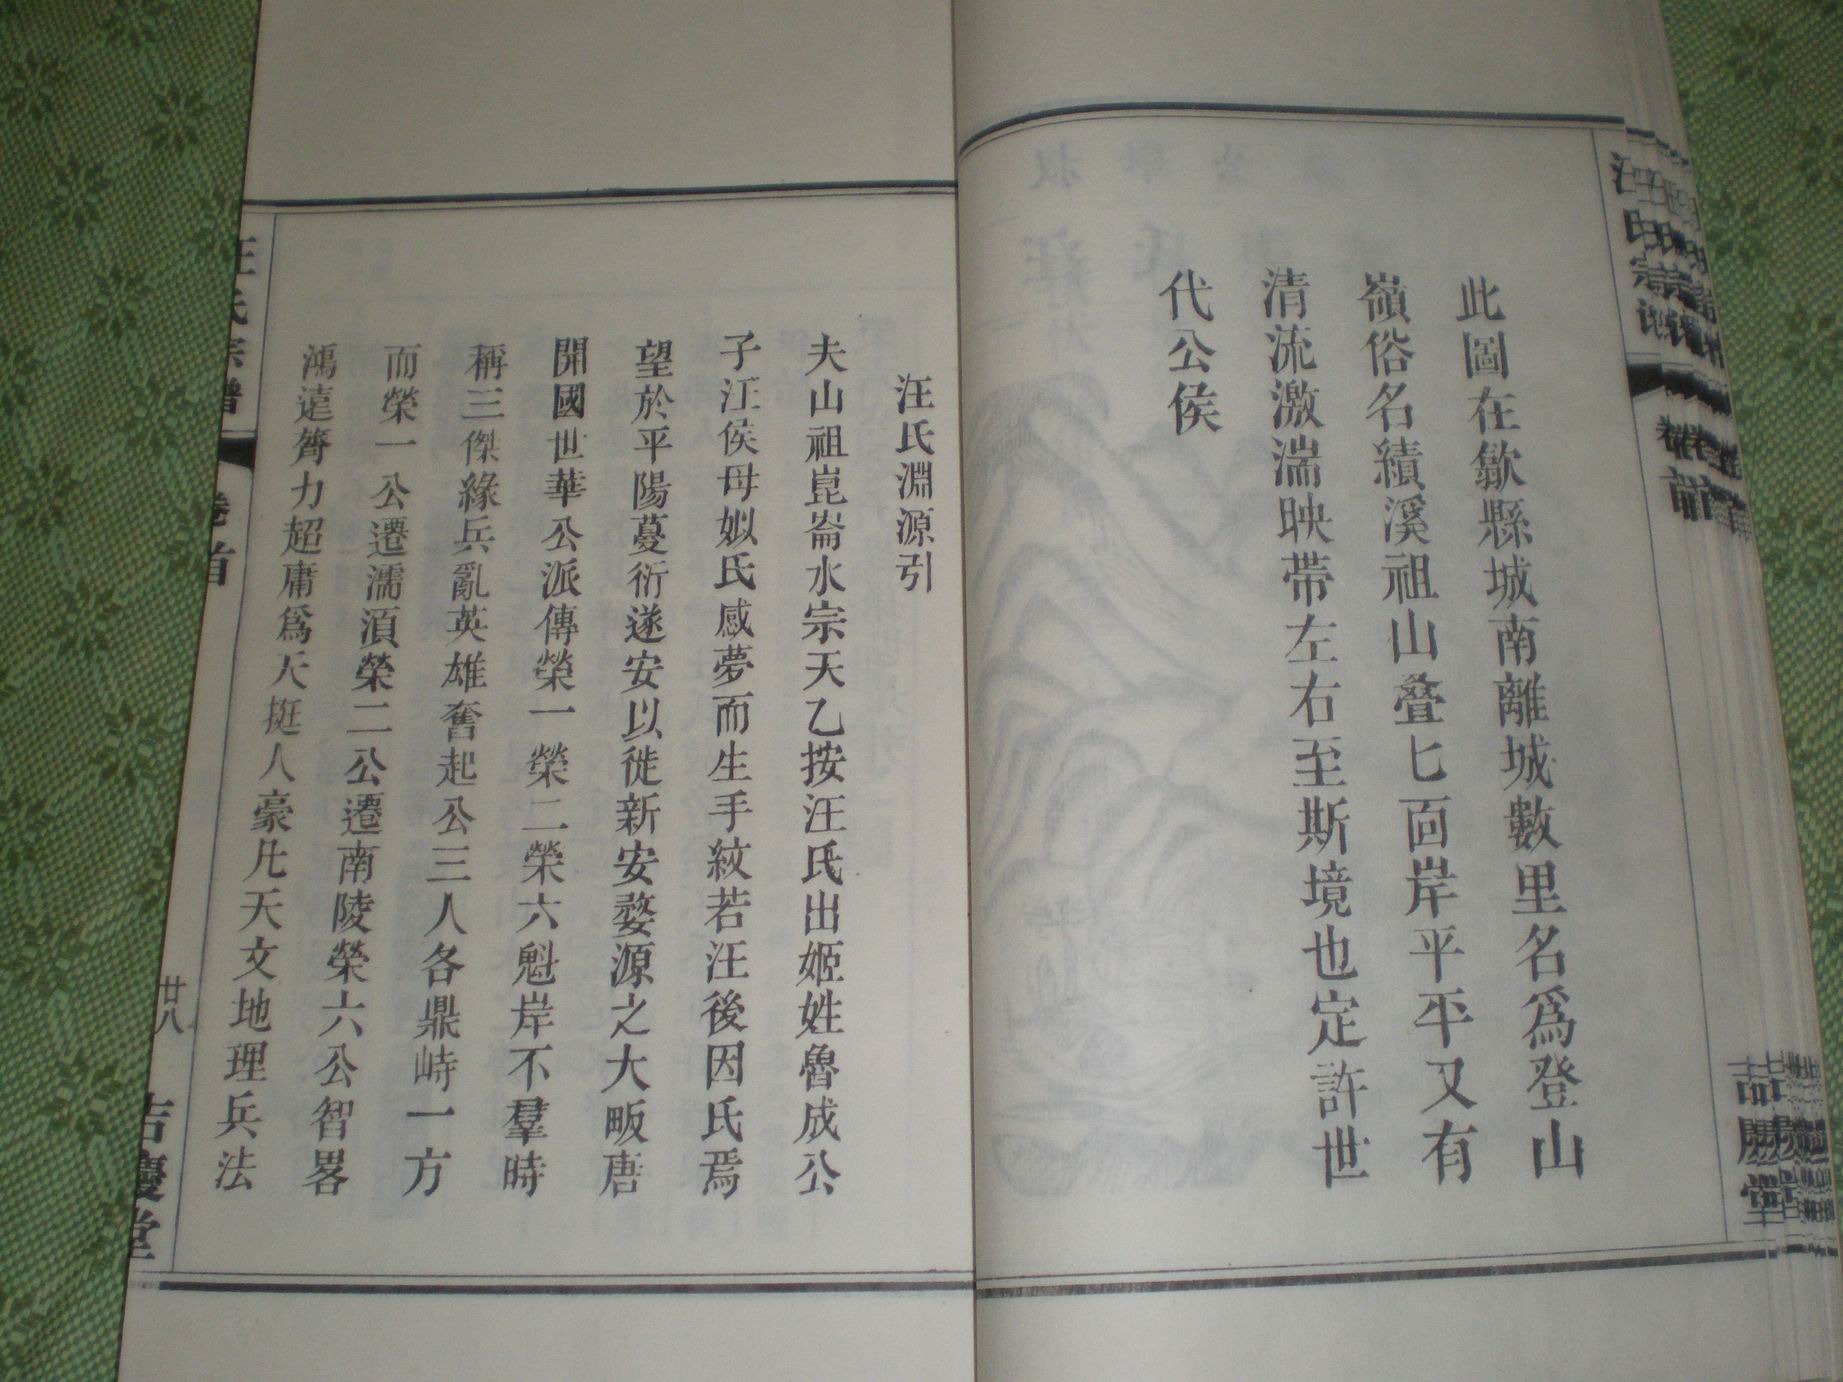 此圖在歙縣城南離城數里名爲登山
嶺俗名績溪祖山叠七面岸平平又有
清流激湍映帶左右至斯境也定許世
代公侯
汪氏淵源引
夫山祖崑崙水宗天乙按汪氏出姬姓魯成公
子汪侯母姒氏感夢而生手紋若汪後因氏焉
望於平陽蔓衍遂安以徙新安婺源之大畈唐
開國世華公派傳榮一榮二榮六魁岸不羣時
稱三傑緣兵亂英雄奮起公三人各鼎峙一方
而榮一公遷濡湏榮二公遷南陵榮六公智畧
鴻遠膂力超庸爲天挺人豪凡天文地理兵法
汪氏宗譜
卷首
廿八
吉慶堂